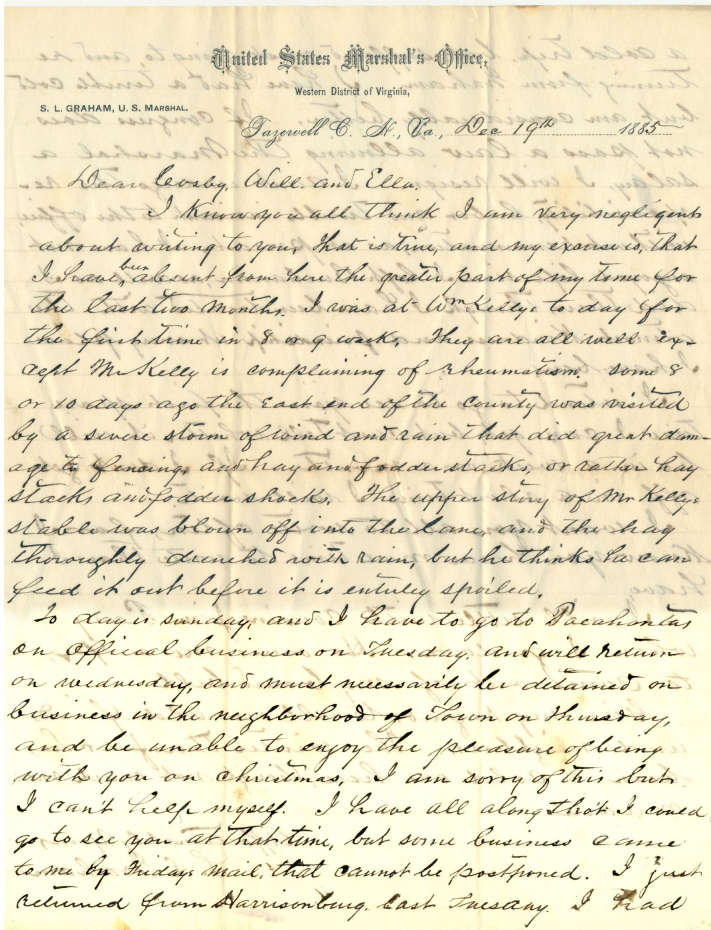 United States Marshal's Office,
Western District of Virginia,
S. L. GRAHAM, U. S. MARSHAL.
Tazewell C. H., Va., Dec 19th 1885
Dear Cosby, Will. and Ella.
I know you all think I am very negligent
about writing to you, that is true, and my excuse is, that
I have been absent from here the greater part of my time for
the last two months. I was at Wm Kellys to day for
the first time in 8 or 9 weeks. They are all well ex-
cept Mr Kelly is complaining of rheumatism. some 8
or 10 days ago the East end of the county was visited
by a severe storm of wind and rain that did great dam-
age to fencing, and hay and fodder stacks, or rather hay
stacks and fodder shocks. The upper story of Mr Kellys
stable was blown off into the lane, and the hay
thoroughly drenched with rain, but he thinks he can
feed it out before it is entirely spoiled.
To day is sunday, and I have to go to Pocahontas
on official business on Tuesday, and will return
on wednesday, and must necessarily be detained on
business in the neighborhood of Town on Thursday,
and be unable to enjoy the pleasure of being
with you on christmas, I am sorry of this but
I can't help myself. I have all along thot I could
go to see you at that time, but some business came
to me by Fridays mail, that cannot be postponed. I just
returned from Harrisonburg last Tuesday. I had